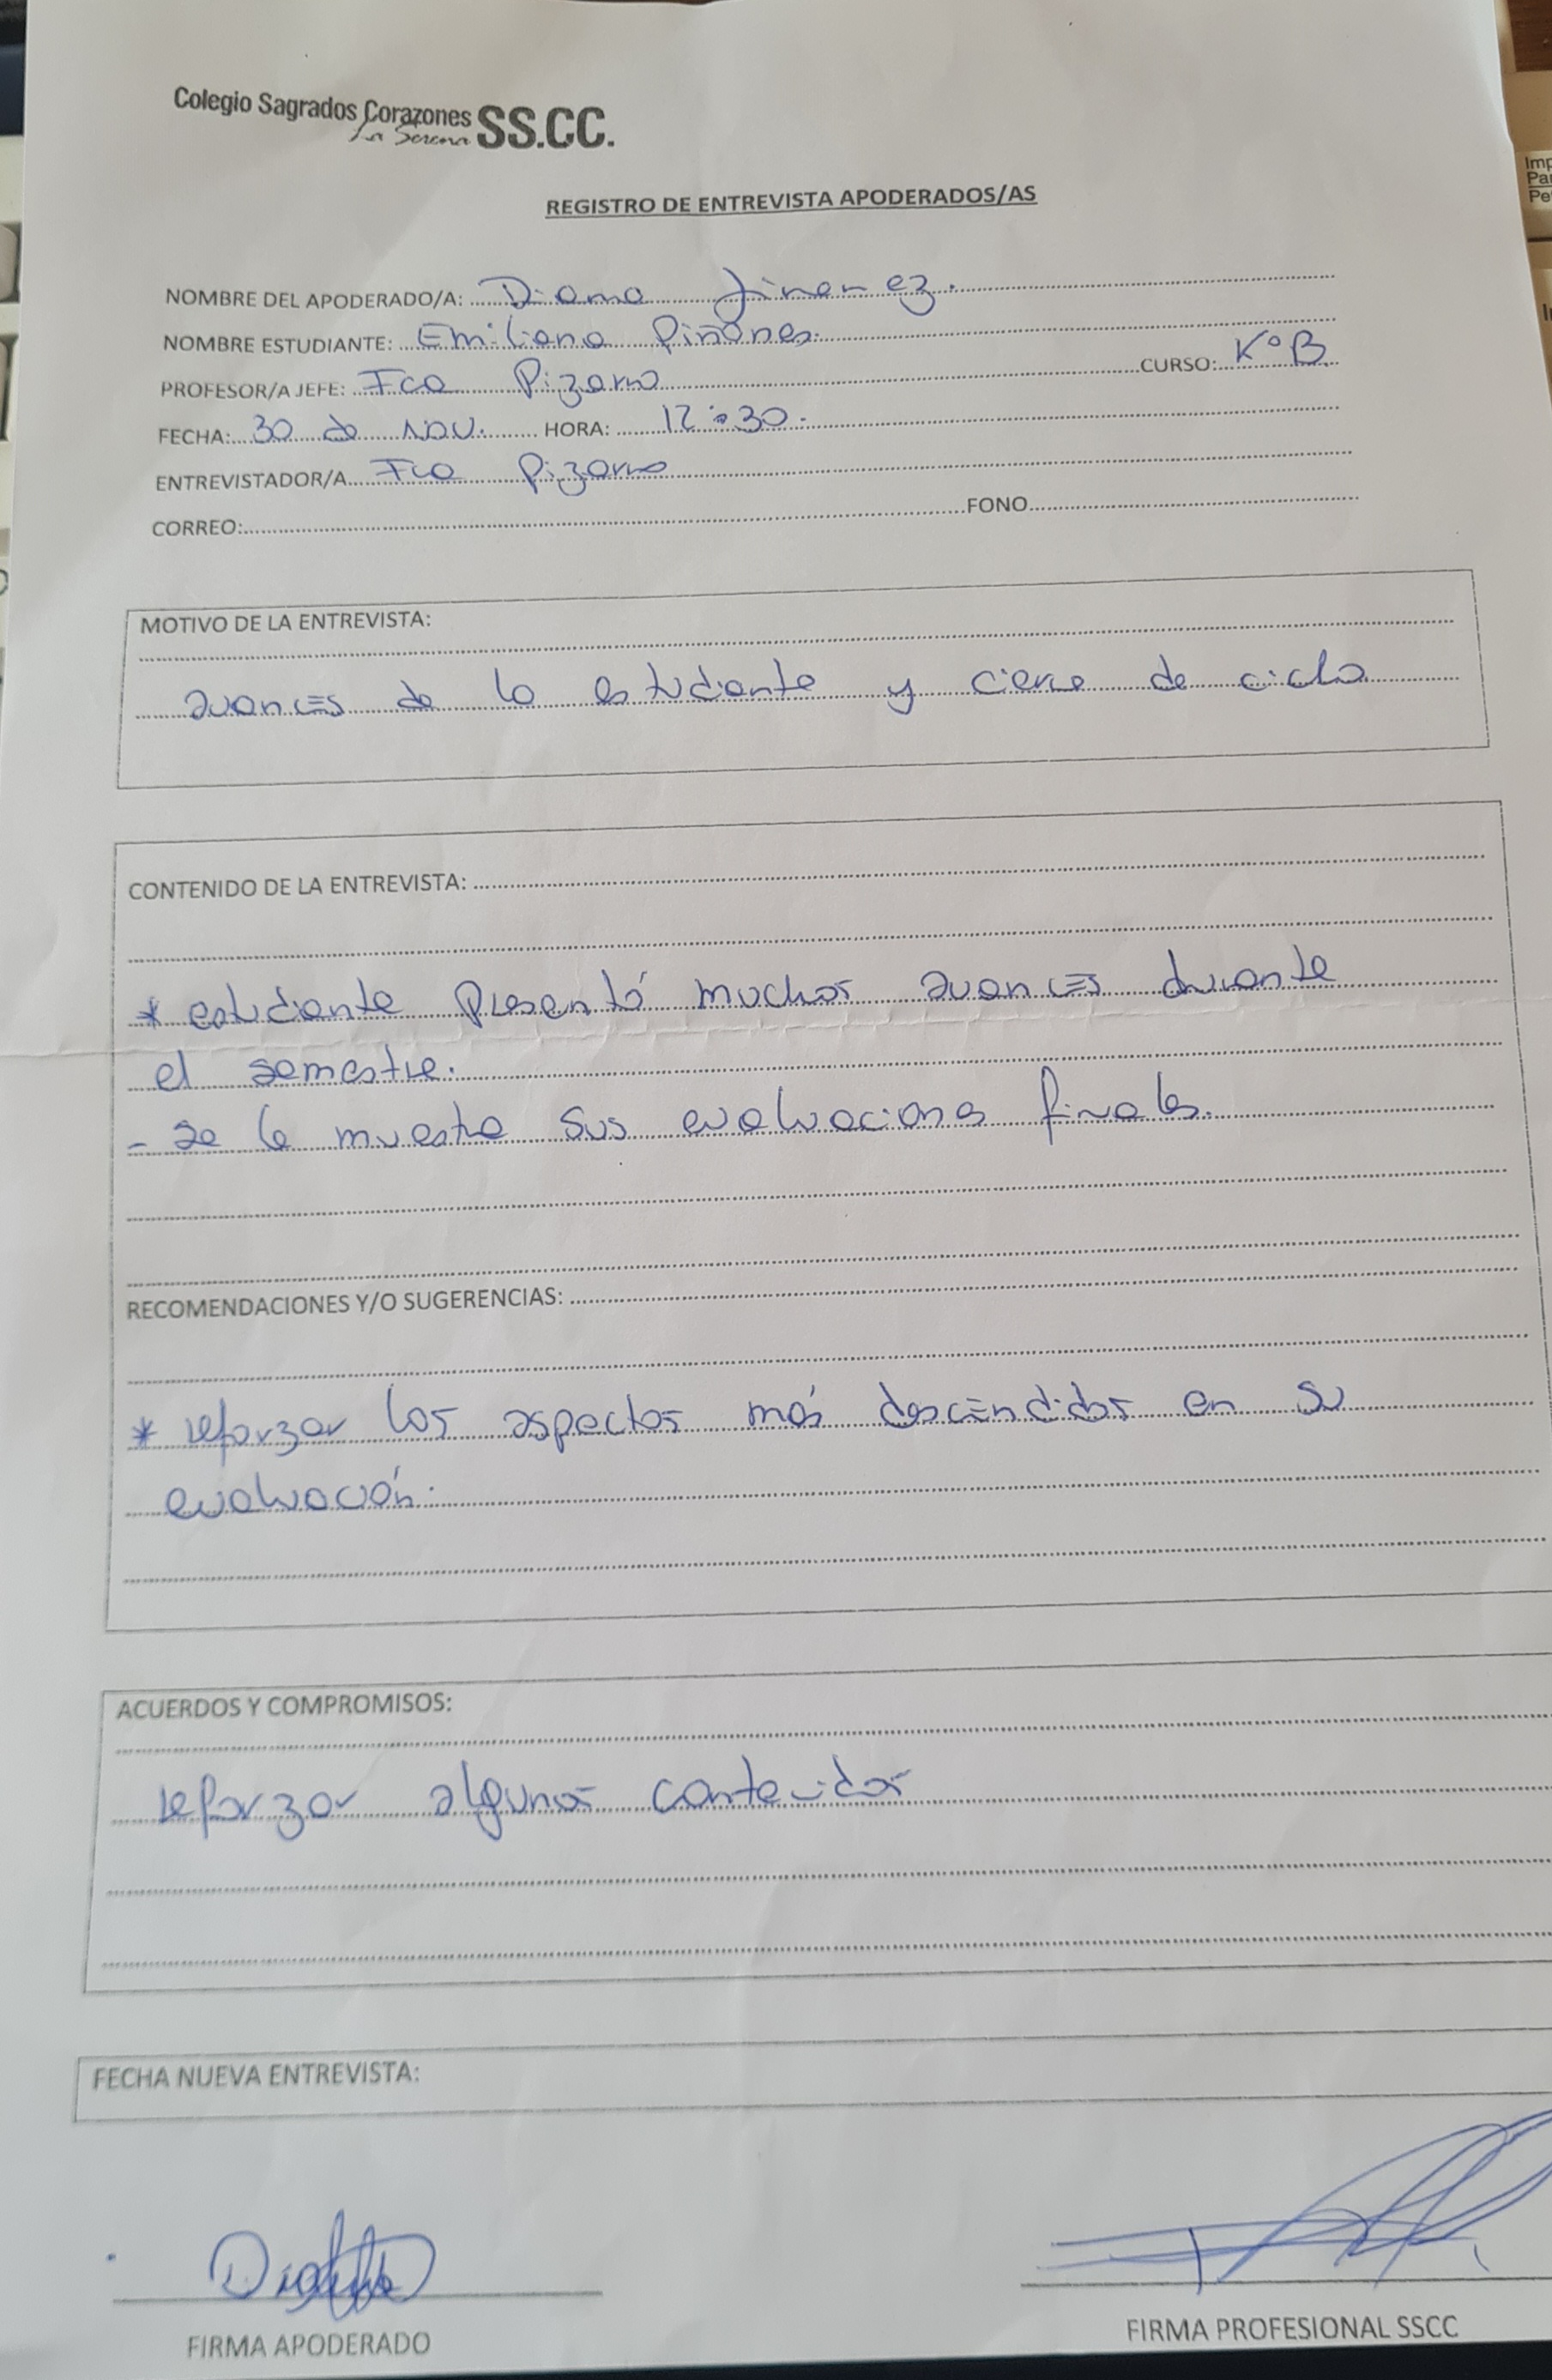 Colegio Sagrados Corazones SS.CC.
La Serena
REGISTRO DE ENTREVISTA APODERADOS/AS
NOMBRE DEL APODERADO/A: Diana Jimenez.
NOMBRE ESTUDIANTE: Emiliana Piñones.
PROFESOR/A JEFE: Fca Pizarro CURSO: K°B.
FECHA: 30 de nov. HORA: 12:30.
ENTREVISTADOR/A Fca Pizarro
CORREO: FONO
MOTIVO DE LA ENTREVISTA:
avances de la estudiante y cierre de ciclo
CONTENIDO DE LA ENTREVISTA:
* estudiante presentó muchos avances durante
el semestre.
- se le muestra sus evaluaciones finales.
RECOMENDACIONES Y/O SUGERENCIAS:
* reforzar los aspectos más descendidos en su
evaluación.
ACUERDOS Y COMPROMISOS:
reforzar algunos contenidos
FECHA NUEVA ENTREVISTA:
FIRMA APODERADO
FIRMA PROFESIONAL SSCC
Imp
Pa
Pe